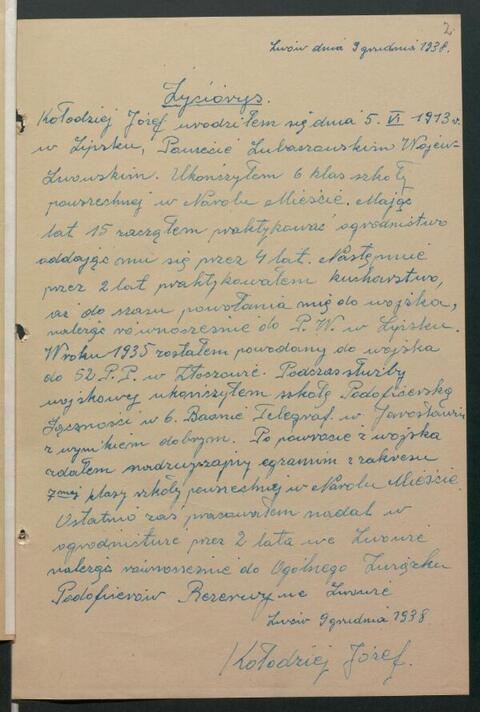 2.
Lwów dnia 9 grudnia 1938.
Życiorys.
Kołodziej Józef urodziłem się dnia 5. VI 1913 r.
w Lipsku, Powiecie Lubaczowskim Wojew.
Lwowskim. Ukończyłem 6 klas szkoły
powszechnej w Narolu Mieście. Mając
lat 15 zacząłem praktykować ogrodnictwo
oddając mu się przez 4 lat. Następnie
przez 2 lat praktykowałem kucharstwo,
aż do czasu powołania mię do wojska,
należąc równocześnie do P.W. w Lipsku.
W roku 1935 zostałem powołany do wojska
do 52 P.P. w Złoczowie. Podczas służby
wojskowy ukończyłem szkołę Podoficerską
Łączności w 6. Baonie Telegraf. w Jarosławiu
z wynikiem dobrym. Po powrocie z wojska
zdałem nadzwyczajny egzamin z zakresu
7mej klasy szkoły powszechnej w Narolu Mieście.
Ostatnio zaś pracowałem nadal w
ogrodnictwie przez 2 lata we Lwowie
należąc równocześnie do Ogólnego Związku
Podoficerów Rezerwy we Lwowie
Lwów 9 grudnia 1938
Kołodziej Józef.